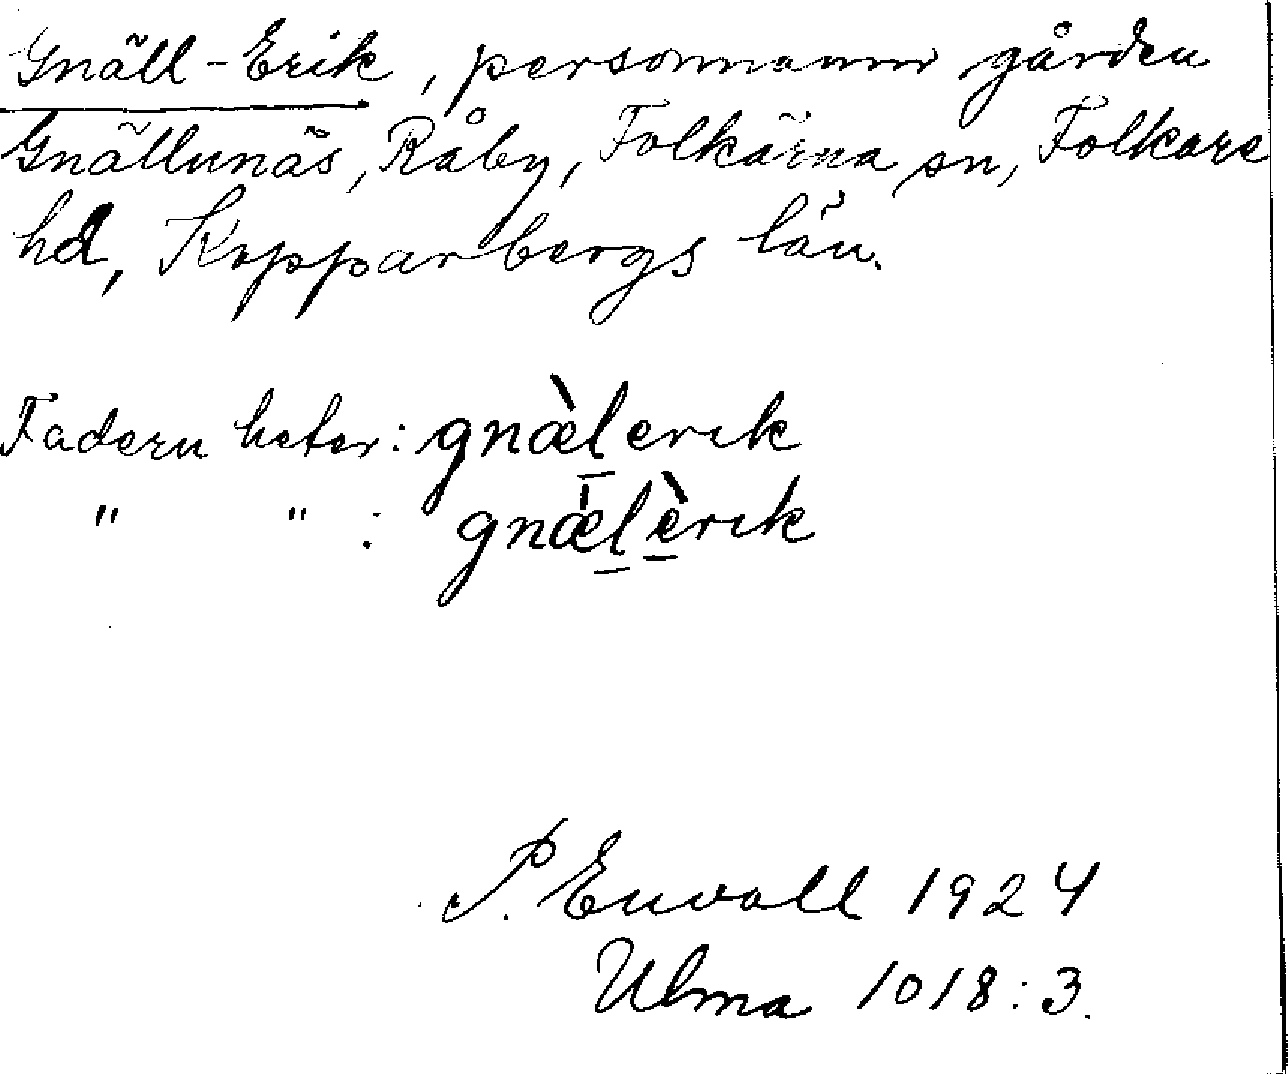 Gnäll-Erik, personnamn gården
Gnällunäs, Råby, Folkärna sn, Folkare
hd, Kopparbergs län.
Fadern heter: gnæ̀l̠erık
" " : gnæ̍l̠è̠rık
P. Envall 1924
Ulma 1018:3.